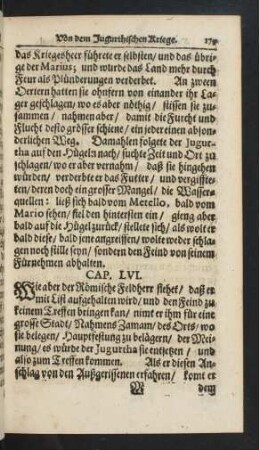 Von dem Jugurthischen Kriege. 179
das Kriegesheer führete er selbsten/ und das übri-
ge der Marius; und wurde das Land mehr durch
Feur als Plünderungen verderbet. An zween
Oertern hatten sie ohnfern von einander ihr La-
ger geschlagen; wo es aber nöthig/ stiessen sie zu-
sammen/ nahmen aber/ damit die Furcht und
Flucht desto grösser schiene/ ein jeder einen abson-
derlichen Weg. Damahlen folgete der Jugur-
tha auf den Hügeln nach/ suchte Zeit und Ort zu
schlagen/ wo er aber vernahm/ daß sie hingehen
würden/ verderbte er das Futter/ und vergifftete
ten/ deren doch ein grosser Mangel/ die Wasser-
quellen: ließ sich bald vom Metello, bald vom
Mario sehen/ fiel den hintersten ein/ gieng aber
bald auf die Hügel zurück/ stellete sich/ als wolt er
bald diese/ bald jene angreiffen/ wolte weder schla-
gen noch stille seyn/ sondern den Feind von seinem
Fürnehmen abhalten.
CAP. LVI.
Wie aber der Römische Feldherr siehet/ daß er
mit List aufgehalten wird/ und den Feind zu
keinem Treffen bringen kan/ nimt er ihm für eine
grosse Stadt/ Nahmens Zamam/ des Orts/ wo
sie belegen/ Hauptfestung zu belägern/ der Mei-
nung/ es würde der Jugurtha sie entsetzen/ und
also zum Treffen kommen. Als er diesen An-
schlag von den Außgerissenen erfahren/ komt er
M dem